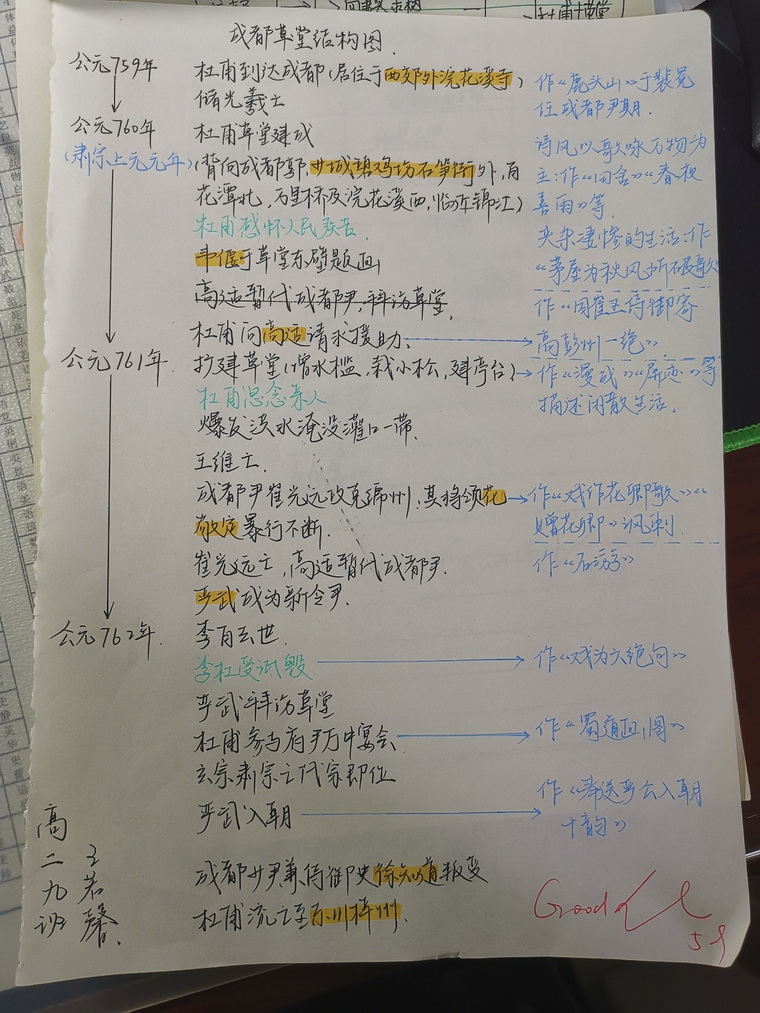 成都草堂结构图.
公元759年
杜甫到达成都(居住于西郊外浣花溪寺)
储光羲亡
作《鹿头山》于裴冕
任成都尹期.
公元760年
(肃宗上元元年)
杜甫草堂建成
(背向成都郭,少城碧鸡坊石笋街外,百
花潭北,万里桥及浣花溪西,临近锦江)
诗风以歌咏万物为
主:作《田舍》《春夜
喜雨》等
杜甫感怀人民疾苦
夹杂凄惨的生活:作
《茅屋为秋风所破歌》
韦偃于草堂东壁题画
高适暂代成都尹,拜访草堂,
杜甫向高适请求援助.
作《因崔五侍御寄
高彭州一绝》
公元761年
扩建草堂(增水槛,栽小松,建亭台)
作《漫成》《屏迹》等
描述闲散生活.
杜甫思念亲人
爆发洪水淹没灌口一带.
王维亡.
成都尹崔光远攻克绵州,其将领花
敬定暴行不断.
作《戏作花卿歌》《
赠花卿》讽刺
崔光远亡,高适暂代成都尹.
作《石犀》
严武成为新令尹.
公元762年
李白去世.
李杜受诋毁
作《戏为六绝句》
严武拜访草堂
杜甫参与府尹厅中宴会
作《蜀道画图》
玄宗肃宗亡代宗即位
严武入朝
作《奉送严公入朝
十韵》
成都少尹兼侍御史徐知道叛变
杜甫流亡至东川梓州.
高二九班
王若馨.
Good
5.9